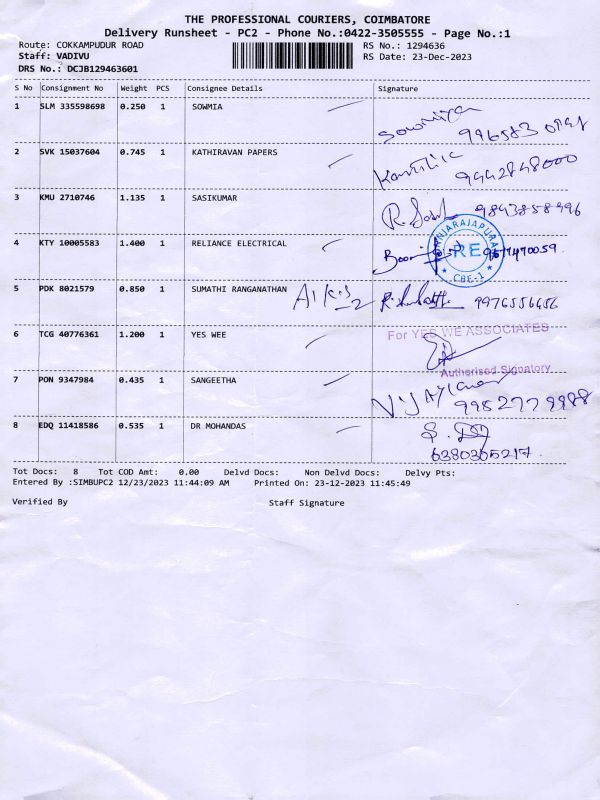 THE PROFESSIONAL COURIERS, COIMBATORE
Delivery Runsheet - PC2 - Phone No.:0422-3505555 - Page No.:1
Route: COKKAMPUDUR ROAD RS No.: 1294636
Staff: VADIVU RS Date: 23-Dec-2023
DRS No.: DCJB129463601
S No Consignment No Weight PCS Consignee Details Signature
1 SLM 335598698 0.250 1 SOWMIA Sowmiya
2 SVK 15037604 0.745 1 KATHIRAVAN PAPERS 9442848000
3 KMU 2710746 1.135 1 SASIKUMAR 9843858996
4 KTY 10005583 1.400 1 RELIANCE ELECTRICAL RE CBE-1
5 PDK 8021579 0.850 1 SUMATHI RANGANATHAN 9976556656
6 TCG 40776361 1.200 1 YES WEE For YES WE ASSOCIATES
Authorised Signatory
7 PON 9347984 0.435 1 SANGEETHA 9952779988
8 EDQ 11418586 0.535 1 DR MOHANDAS 6380305217
Tot Docs: 8 Tot COD Amt: 0.00 Delvd Docs: Non Delvd Docs: Delvy Pts:
Entered By :SIMBUPC2 12/23/2023 11:44:09 AM Printed On: 23-12-2023 11:45:49
Verified By Staff Signature